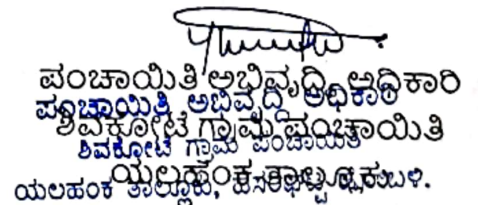 ಪಂಚಾಯಿತಿ ಅಭಿವೃದ್ಧಿ ಅಧಿಕಾರಿ
ಪಂಚಾಯಿತಿ ಅಭಿವೃದ್ಧಿ ಅಧಿಕಾರಿ
ಶಿವಕೋಟೆ ಗ್ರಾಮ ಪಂಚಾಯಿತಿ
ಶಿವಕೋಟೆ ಗ್ರಾಮ ಪಂಚಾಯಿತಿ
ಯಲಹಂಕ ತಾಲ್ಲೂಕು
ಯಲಹಂಕ ತಾಲ್ಲೂಕು, ಹೋಬಳಿ.